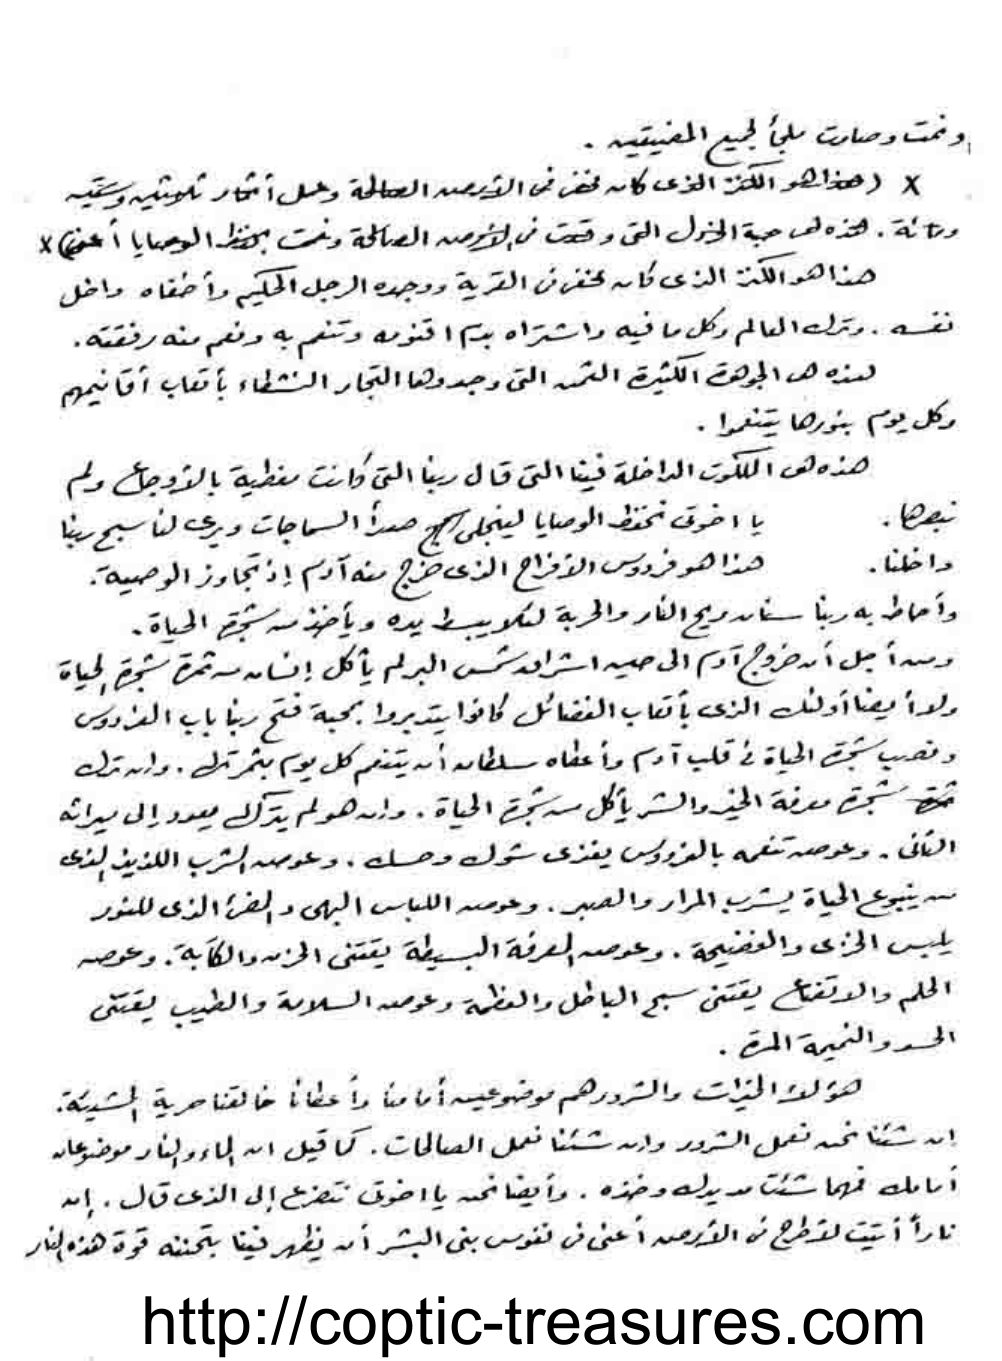 ونمت وصارت ملجأ لجميع المضيقين .
x (هذا هو الكنز الذى كان مخفى فى الأرض الصالحة وعمل أثمار ثلاثين وستين
ومائة . هذه هى حبة الخردل التى وقعت فى الأرض الصالحة ونمت بحفظ الوصايا أعنى) x
هذا هو الكنز الذى كان مخفى فى القرية ووجده الرجل الحكيم وأخفاه داخل
نفسه . وترك العالم وكل ما فيه واشتراه بدم اقنومه وتنعم به ونعم منه رفقته .
هذه هى الجوهرة الكثيرة الثمن التى وجدوها التجار النشطاء بأتعاب أقانيمهم
وكل يوم بنورها يتنعموا .
هذه هى الملكوت الداخلة فينا التى قال ربنا التى كانت مغطية بالأوجاع ولم
نبصرها . يا اخوتى نحفظ الوصايا لينجلى صدأ السماجات ويرى لنا سبح ربنا
داخلنا . هذا هو فردوس الأفراح الذى خرج منه آدم إذ تجاوز الوصية .
وأحاط به ربنا سنان ريح النار والحربة لئلا يبسط يده ويأخذ من شجرة الحياة .
ومن أجل أن خروج آدم الى حين اشراق شمس البر لم يأكل إنسان من ثمرة شجرة الحياة
ولا أيضا أولئك الذى بأتعاب الفضائل كانوا يتدبروا بمحبة فتح ربنا باب الفردوس
ونصب شجرة الحياة فى قلب آدم وأعطاه سلطان أن يتنعم كل يوم بثمرتها . وان ترك
شجرة معرفة الخير والشر يأكل من شجرة الحياة . وان هو لم يترك يعود إلى ميراثه
الثانى . وعوض تنعمه بالفردوس يغتذى شوك وحسك . وعوض الشرب اللذيذ الذى
من ينبوع الحياة يشرب المرار والصبر . وعوض اللباس البهى والضوء الذى للنور
يلبس الخزى والفضيحة . وعوض المعرفة البسيطة يقتنى الحزن والكآبة . وعوض
الحلم والاتضاع يقتنى سبح الباطل والعظمة وعوض السلامة والطيب يقتنى
الحسد والنميمة المرة .
هؤلاء الخيرات والشرور هم موضوعين أمامنا وأعطانا خالقنا حرية المشيئة .
ان شئنا نحن نعمل الشرور وان شئنا نعمل الصالحات . كما قيل ان الماء والنار موضوعان
أمامك فمهما شئت مد يدك وخذه . وأيضا نحن يا اخوتى نتضرع إلى الذى قال . إن
ناراً أتيت لأطرح فى الأرض أعنى فى نفوس بنى البشر أن يظهر فينا بتحننه قوة هذه النار
http://coptic-treasures.com